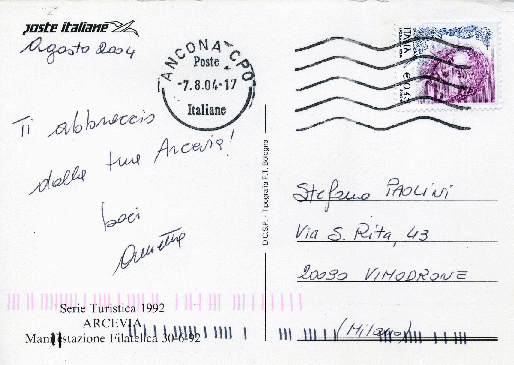 poste italiane
Agosto 2004
ANCONA CPO
Poste
-7.8.04-17
Italiane
ITALIA
Ti abbraccio
dalla tua Arcevia!
baci
D.C.S.P. - Tipografia F.T. Bologna
Stefano PAOLINI
Via S. Rita, 43
20090 VIMODRONE
(Milano)
Serie Turistica 1992
ARCEVIA
Manifestazione Filatelica 30-6-92